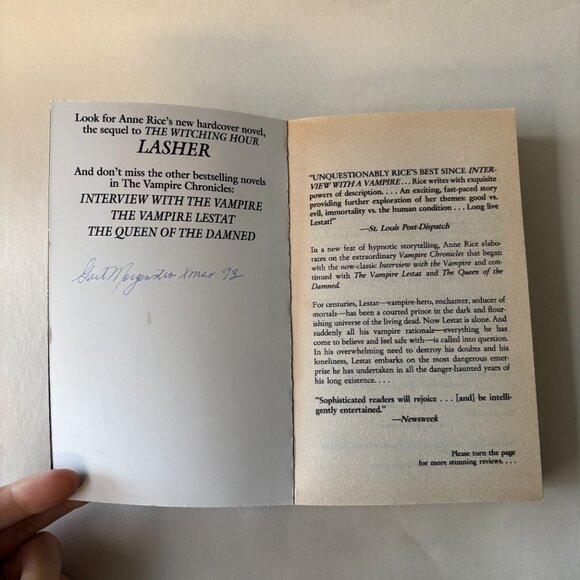 Look for Anne Rice's new hardcover novel,
the sequel to THE WITCHING HOUR
LASHER
And don't miss the other bestselling novels
in The Vampire Chronicles:
INTERVIEW WITH THE VAMPIRE
THE VAMPIRE LESTAT
THE QUEEN OF THE DAMNED
Xmas '93
"UNQUESTIONABLY RICE'S BEST SINCE INTER-
VIEW WITH A VAMPIRE... Rice writes with exquisite
powers of description. . . . An exciting, fast-paced story
providing further exploration of her themes: good vs.
evil, immortality vs. the human condition . . . Long live
Lestat!"
—St. Louis Post-Dispatch
In a new feat of hypnotic storytelling, Anne Rice elab-
orates on the extraordinary Vampire Chronicles that began
with the now-classic Interview with the Vampire and con-
tinued with The Vampire Lestat and The Queen of the
Damned.
For centuries, Lestat—vampire-hero, enchanter, seducer of
mortals—has been a courted prince in the dark and flour-
ishing universe of the living dead. Now Lestat is alone. And
suddenly all his vampire rationale—everything he has
come to believe and feel safe with—is called into question.
In his overwhelming need to destroy his doubts and his
loneliness, Lestat embarks on the most dangerous enter-
prise he has undertaken in all the danger-haunted years of
his long existence. . . .
"Sophisticated readers will rejoice . . . [and] be intelli-
gently entertained."
—Newsweek
Please turn the page
for more stunning reviews. . . .